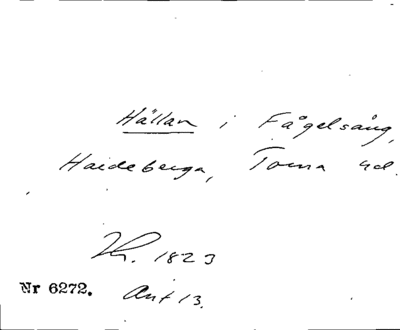 Hällan i Fågelsång,
Hardeberga, Torna hd.
Kr. 1823
Nr 6272. Ant 13.